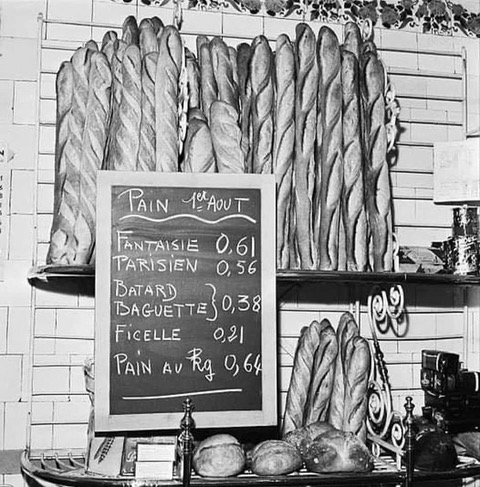 PAIN 1er AOUT
FANTAISIE 0,61
PARISIEN 0,56
BATARD
BAGUETTE } 0,38
FICELLE 0,21
PAIN AU Kg 0,64